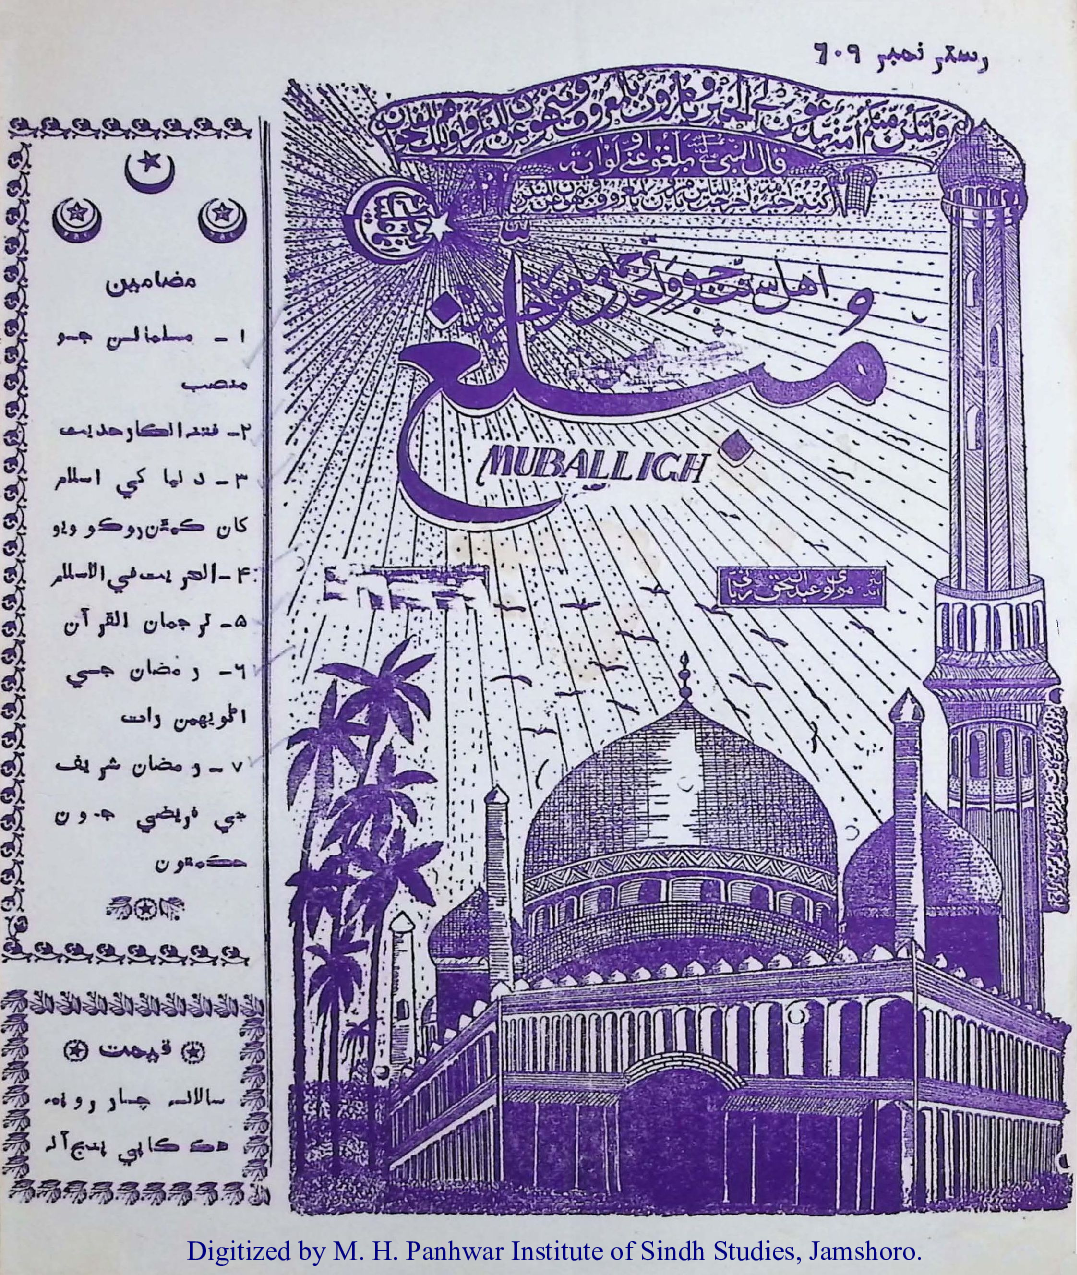 رستر نمبر ٦٠٩
ولتكن منكم امة يدعون الى الخير و يامرون بالمعروف و ينهون عن المنكر و اولئك هم المفلحون
قال النبي ﷺ بلغوا عني ولو آية
كنتم خير امة اخرجت للناس تامرون بالمعروف و تنهون عن المنكر
اهل سنت جو واحد ترجمان
مبلغ
MUBALLIGH
مولوي عبدالحق رباني
مضامين
١ - مسلمانن جو
منصب
٢- فتنه انكار حديث
٣ - دنيا کي اسلام
کان ڪمثن روڪيو ويو
۴ - الحريت في الاسلام
۵ - ترجمان القرآن
٦ - رمضان جي
اٺويهين رات
٧ - رمضان شريف
جي فريضي جون
حڪمتون
قيمت
سالانه چار روپيه
هڪ ڪاپي پنج آنہ
Digitized by M. H. Panhwar Institute of Sindh Studies, Jamshoro.